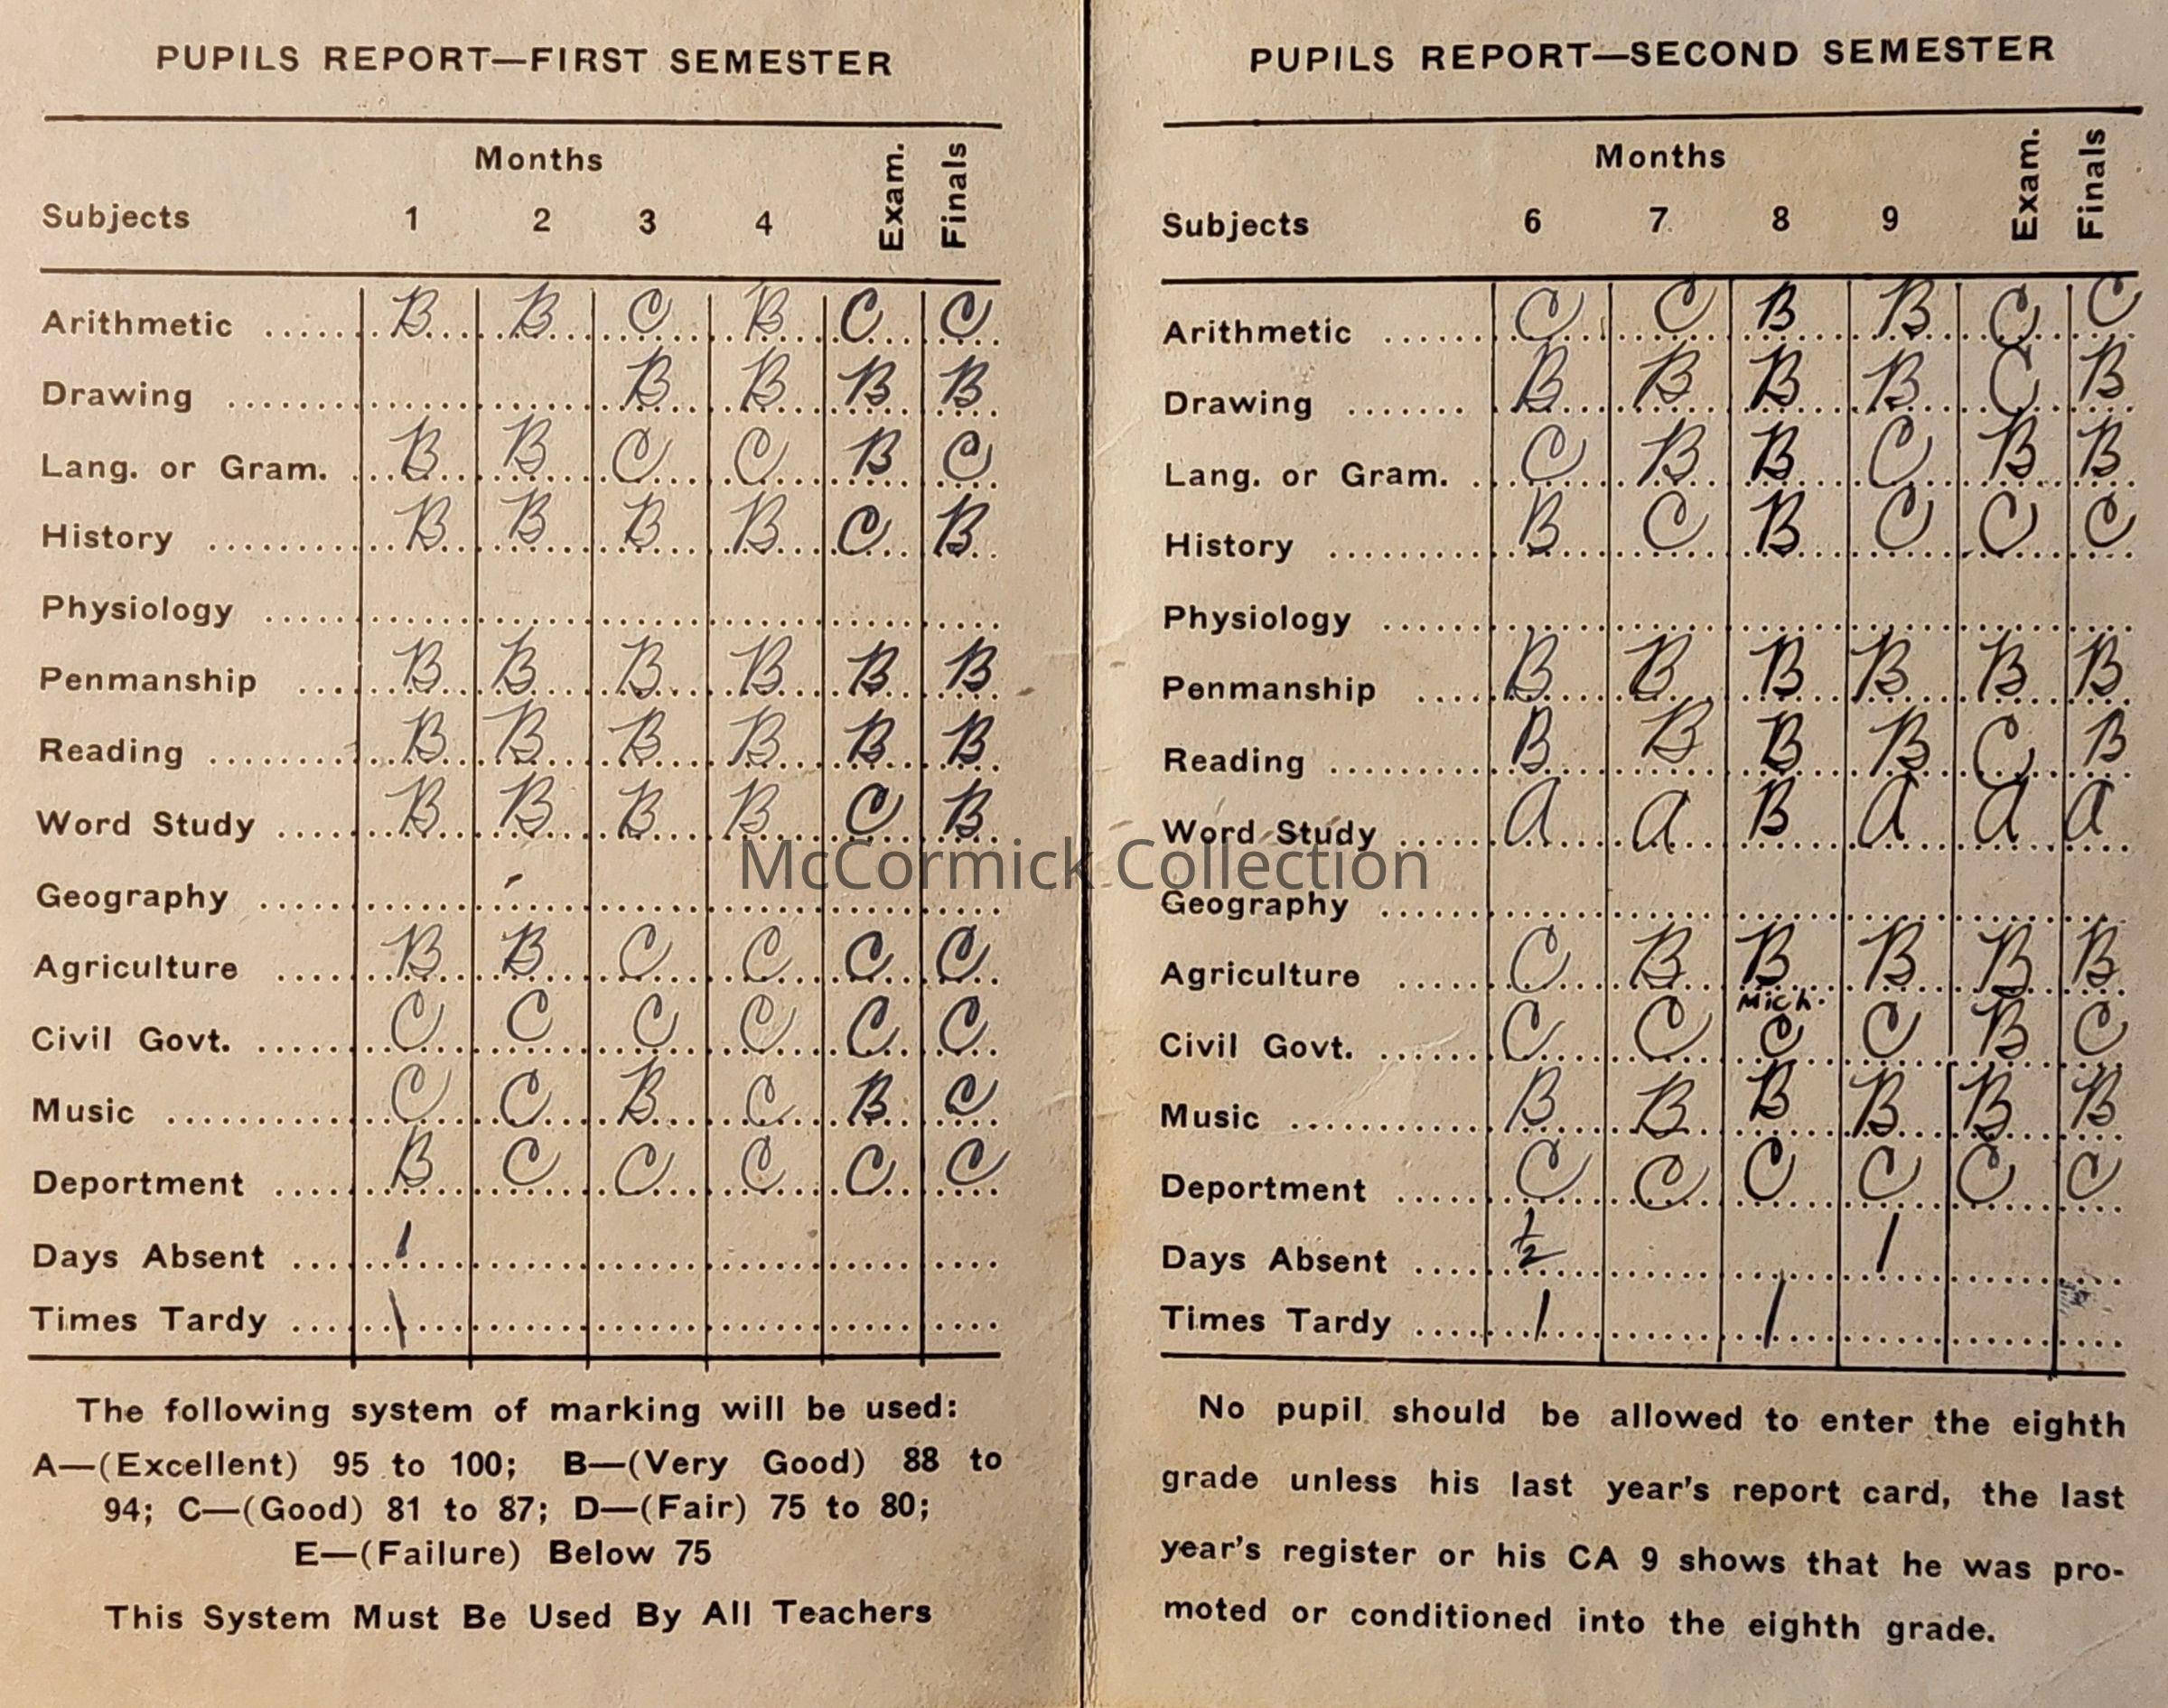 PUPILS REPORT—FIRST SEMESTER
Months
Subjects 1 2 3 4 Exam. Finals
Arithmetic ...... B B C B C C
Drawing ........... B B B B
Lang. or Gram. .. B B C C B C
History ........... B B B B C B
Physiology ........
Penmanship .... B B B B B B
Reading .......... B B B B B B
Word Study ...... B B B B C B
Geography .......
Agriculture ...... B B C C C C
Civil Govt. ....... C C C C C C
Music ............ C C B C B C
Deportment ..... B C C C C C
Days Absent .... 1
Times Tardy .... 1
The following system of marking will be used:
A—(Excellent) 95 to 100; B—(Very Good) 88 to
94; C—(Good) 81 to 87; D—(Fair) 75 to 80;
E—(Failure) Below 75
This System Must Be Used By All Teachers
PUPILS REPORT—SECOND SEMESTER
Months
Subjects 6 7 8 9 Exam. Finals
Arithmetic ...... C C B B C C
Drawing ....... B B B B C B
Lang. or Gram. .. C B B C B B
History .......... B C B C C C
Physiology .......
Penmanship .... B B B B B B
Reading .......... B B B B C B
Word Study ...... A A B A A A
Geography .......
Agriculture ...... C B B B B B
Mich.
Civil Govt. ....... C C C C B C
Music ............ B B B B B B
Deportment ..... C C C C C C
Days Absent .... 1/2 1
Times Tardy .... 1 1
No pupil should be allowed to enter the eighth
grade unless his last year's report card, the last
year's register or his CA 9 shows that he was pro-
moted or conditioned into the eighth grade.
McCormick Collection